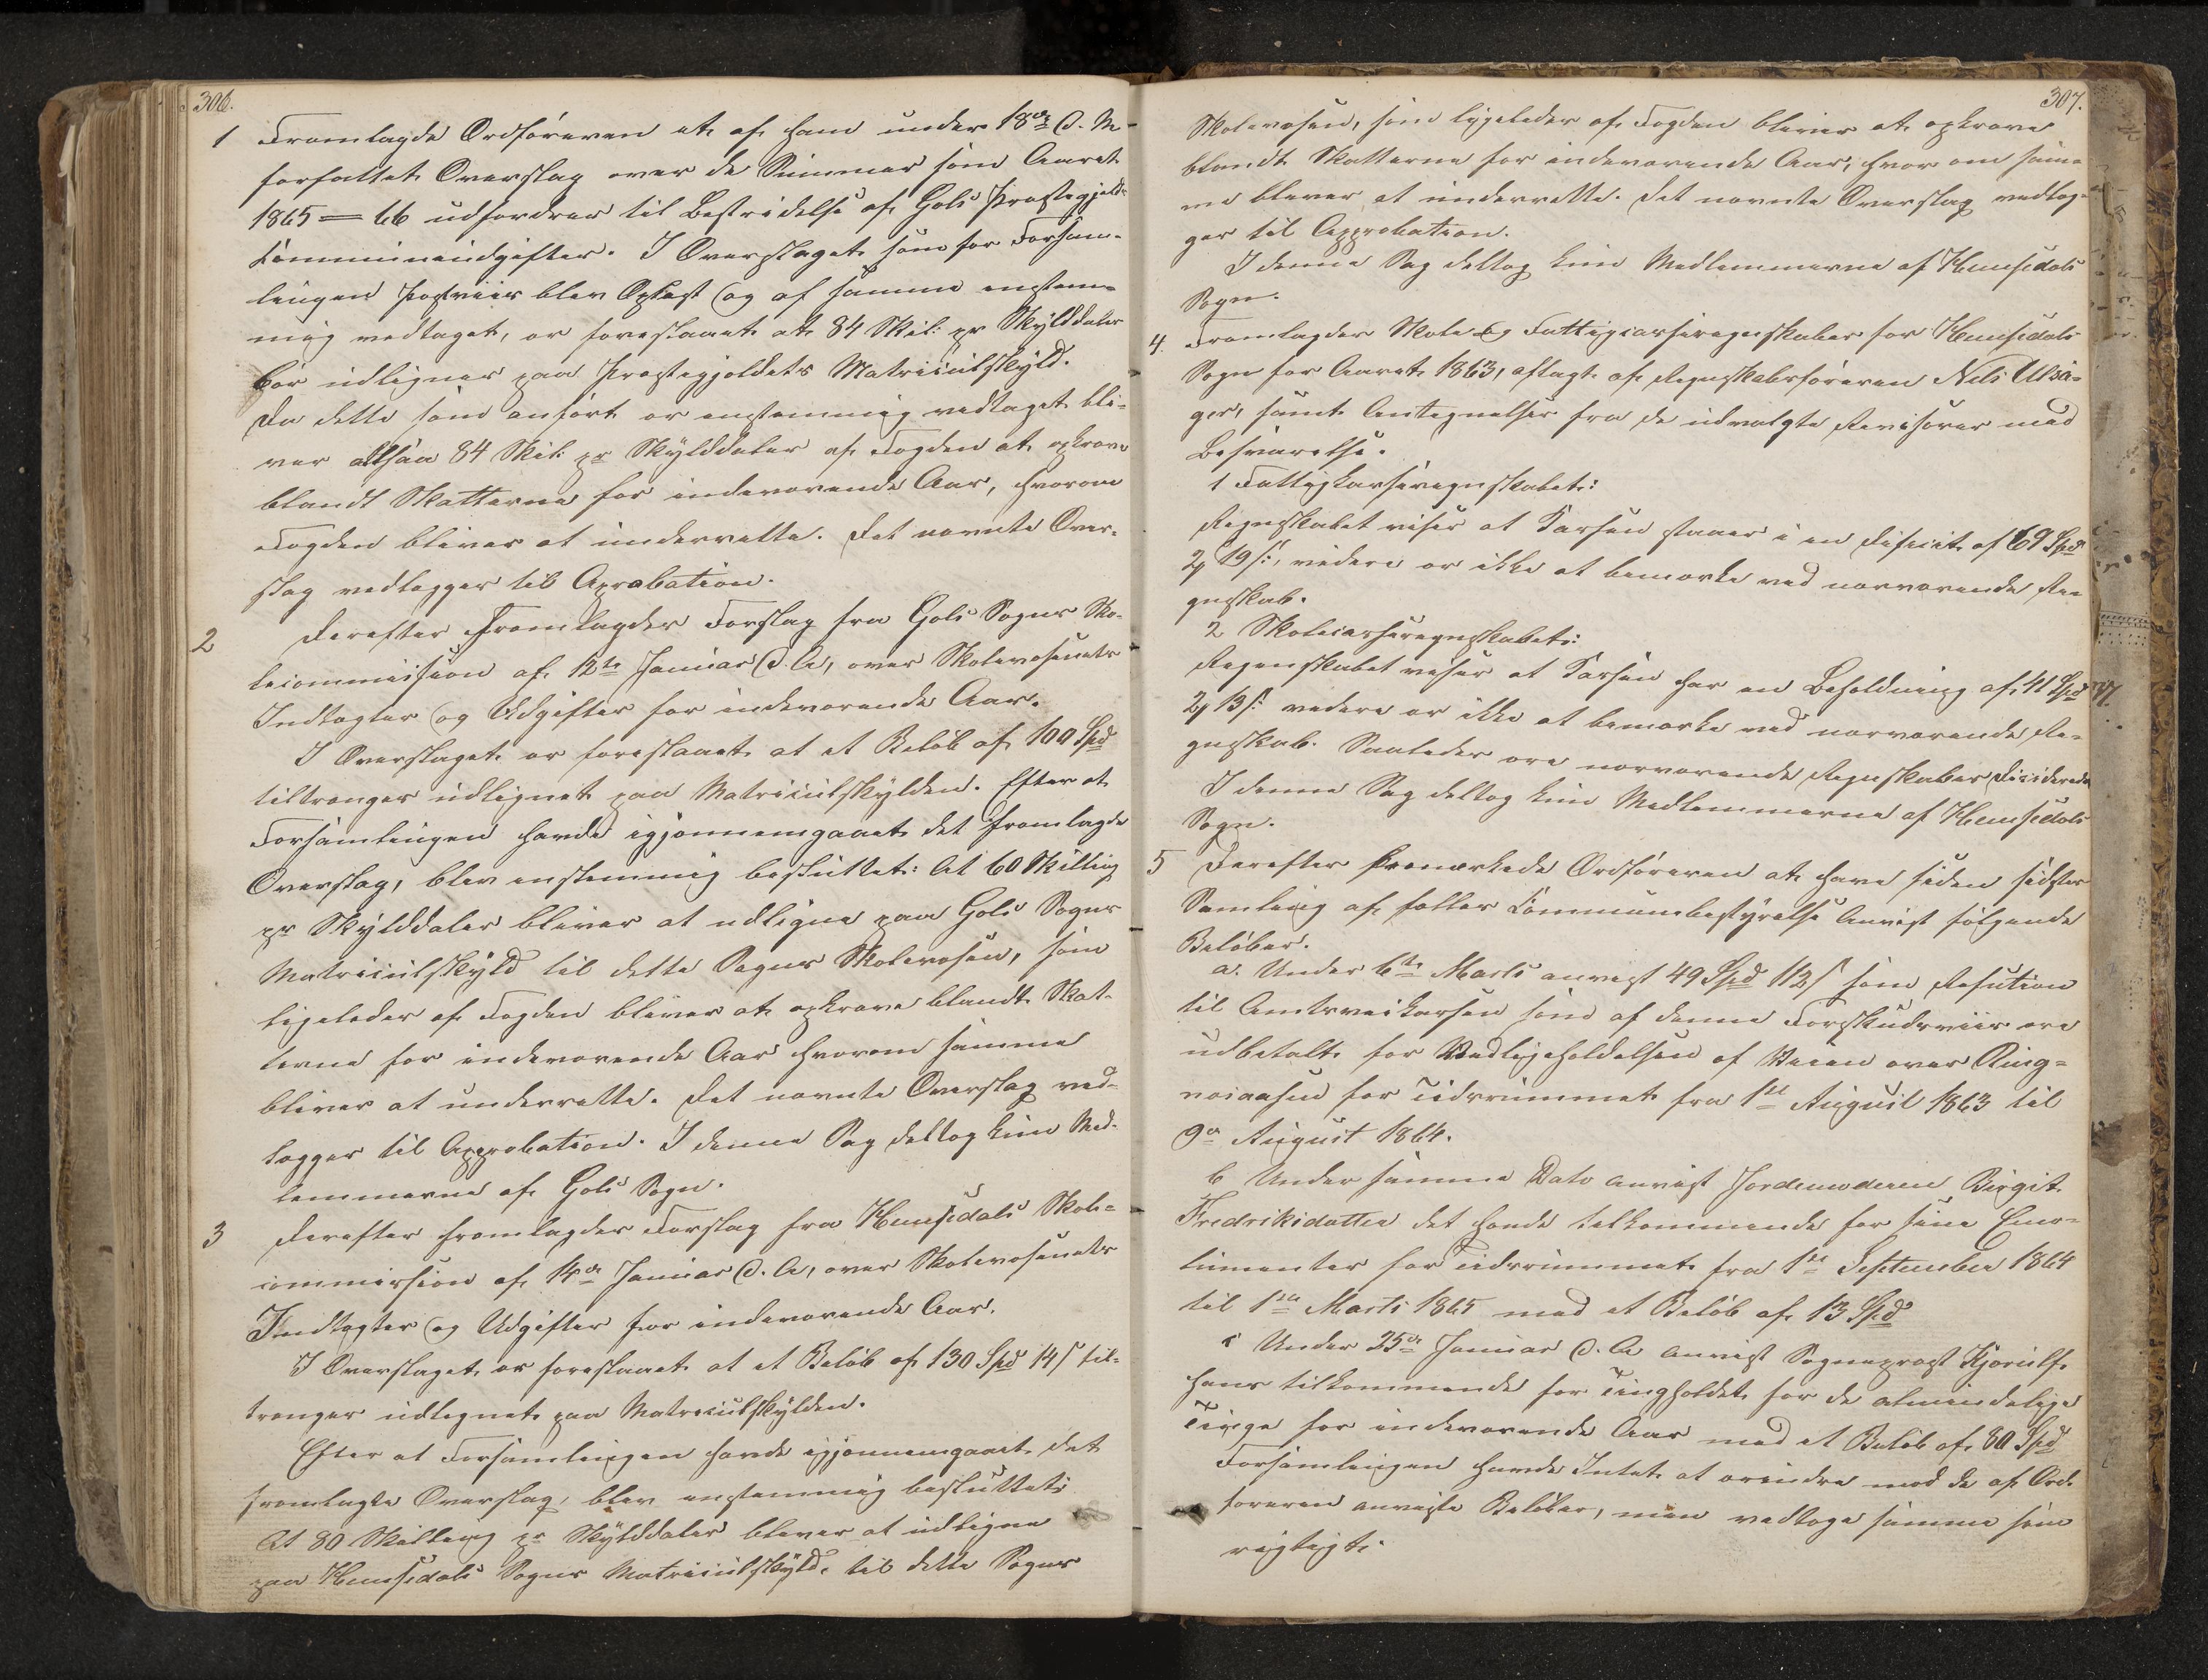 306.
1 Fremlagde Ordføreren et af ham under 18de d. M.
forfattet Overslag over de Summer som Aaret
1865=66 udfordres til Bestridelse af Gols Præstegjelds
Communeudgifter. I Overslaget som for Forsam-
lingen blev Oplæst og af samme enstem-
mig vedtaget, er foreslaaet at 84 Skil: pr Skylddaler
bør udlignes paa Præstegjeldets Matriculskyld.
Da dette som anført er enstemmig vedtaget bli-
ver altsaa 84 Skil: pr Skylddaler af Fogden at opkræve
blandt Skatterne for indeværende Aar, hvorom
Fogden bliver at underrette. Det nævnte Over-
slag vedlægges til Aprobation.
2 Derefter Fremlagdes Forslag fra Gols Sogns Sko-
lecommission af 12te Januar d. A, over Skolevæsenets
Indtægter og Udgifter for indeværende Aar.
I Overslaget er foreslaaet at et Beløb af 100 Spd
tiltrænges udlignet paa Matriculskylden. Efter at
Forsamlingen havde igjennemgaaet det fremlagde
Overslag, blev enstemmig besluttet: At 60 Skilling
pr Skylddaler bliver at udligne paa Gols Sogns
Matriculskyld til dette Sogns Skolevæsen, som
ligeledes af Fogden bliver at opkræve blandt Skat-
terne for indeværende Aar hvorom samme
bliver at underrette. Det nævnte Overslag ved-
lægges til Approbation. I denne Sag deltog kun Med-
lemmerne af Gols Sogn.
3 Derefter fremlagdes Forslag fra Hemsedals Skole-
commission af 14de Januar d. A, over Skolevæsenets
Indtægter og Udgifter for indeværende Aar.
I Overslaget er foreslaaet at et Beløb af 130 Spd 14 s til-
trænges udlignet paa Matriculskylden.
Efter at Forsamlingen havde igjennemgaaet det
fremlagte Overslag, blev enstemmig besluttet:
At 80 Skilling pr Skylddaler bliver at udligne
paa Hemsedals Sogns Matriculskyld, til dette Sogns
307.
Skolevæsen, som ligeledes af Fogden bliver at opkræve
blandt Skatterne for indeværende Aar, hvor om sam-
me bliver at underrette. Det nævnte Overslag vedlæg-
ges til Approbation.
I denne Sag deltog kun Medlemmerne af Hemsedals
Sogn.
4. Fremlagdes Skole og Fattigcasseregnskaber for Hemsedals
Sogn for Aaret 1863, aflagt af Regnskabsføreren Nils Ulsa-
ger, samt Antegnelser fra de udvalgte Revisorer med
Besvarelse.
1 Fattigkasseregnskabet:
Regnskabet viser at Kassen staaer i en Deficit af 69 Spd
2 19 s:, videre er ikke at bemærke ved nærværende Re-
gnskab.
2 Skolecasseregnskabet:
Regnskabet viser at Kassen har en Beholdning af 41 Spd
2 13 s: videre er ikke at bemærke ved nærværende Re-
gnskab. Saaledes ere nærværende Regnskaber Deciderede
I denne Sag deltog kun Medlemmerne af Hemsedals
Sogn.
5 Derefter bemærkede Ordføreren at have siden sidste
Samling af fælles Communbestyrelse Anvist følgende
Beløber.
a. Under 6te Marts anvist 49 Spd 112 s som Refution
til Amtsveikassen som af denne Forskudsviis ere
udbetalt for Vedligeholdelsen af Veien over Ring-
neiaasen for Tidsrummet fra 1ste August 1863 til
9de August 1864.
b Under samme Dato anvist Jordemoderen Birgit
Fredriksdatter det hende tilkommende for sine Emo-
lumenter for Tidsrummet fra 1ste September 1864
til 1ste Marts 1865 med et Beløb af 13 Spd
c Under 25de Januar d. A anvist Sogneprest Kjerulf
hans tilkommende for Tingholdet for de almindelige
Tinge for indeværende Aar med et Beløb af 80 Spd
Forsamlingen havde Intet at erindre mod de af Ord-
føreren anviste Beløber, men vedtoge samme som
rigtigt.